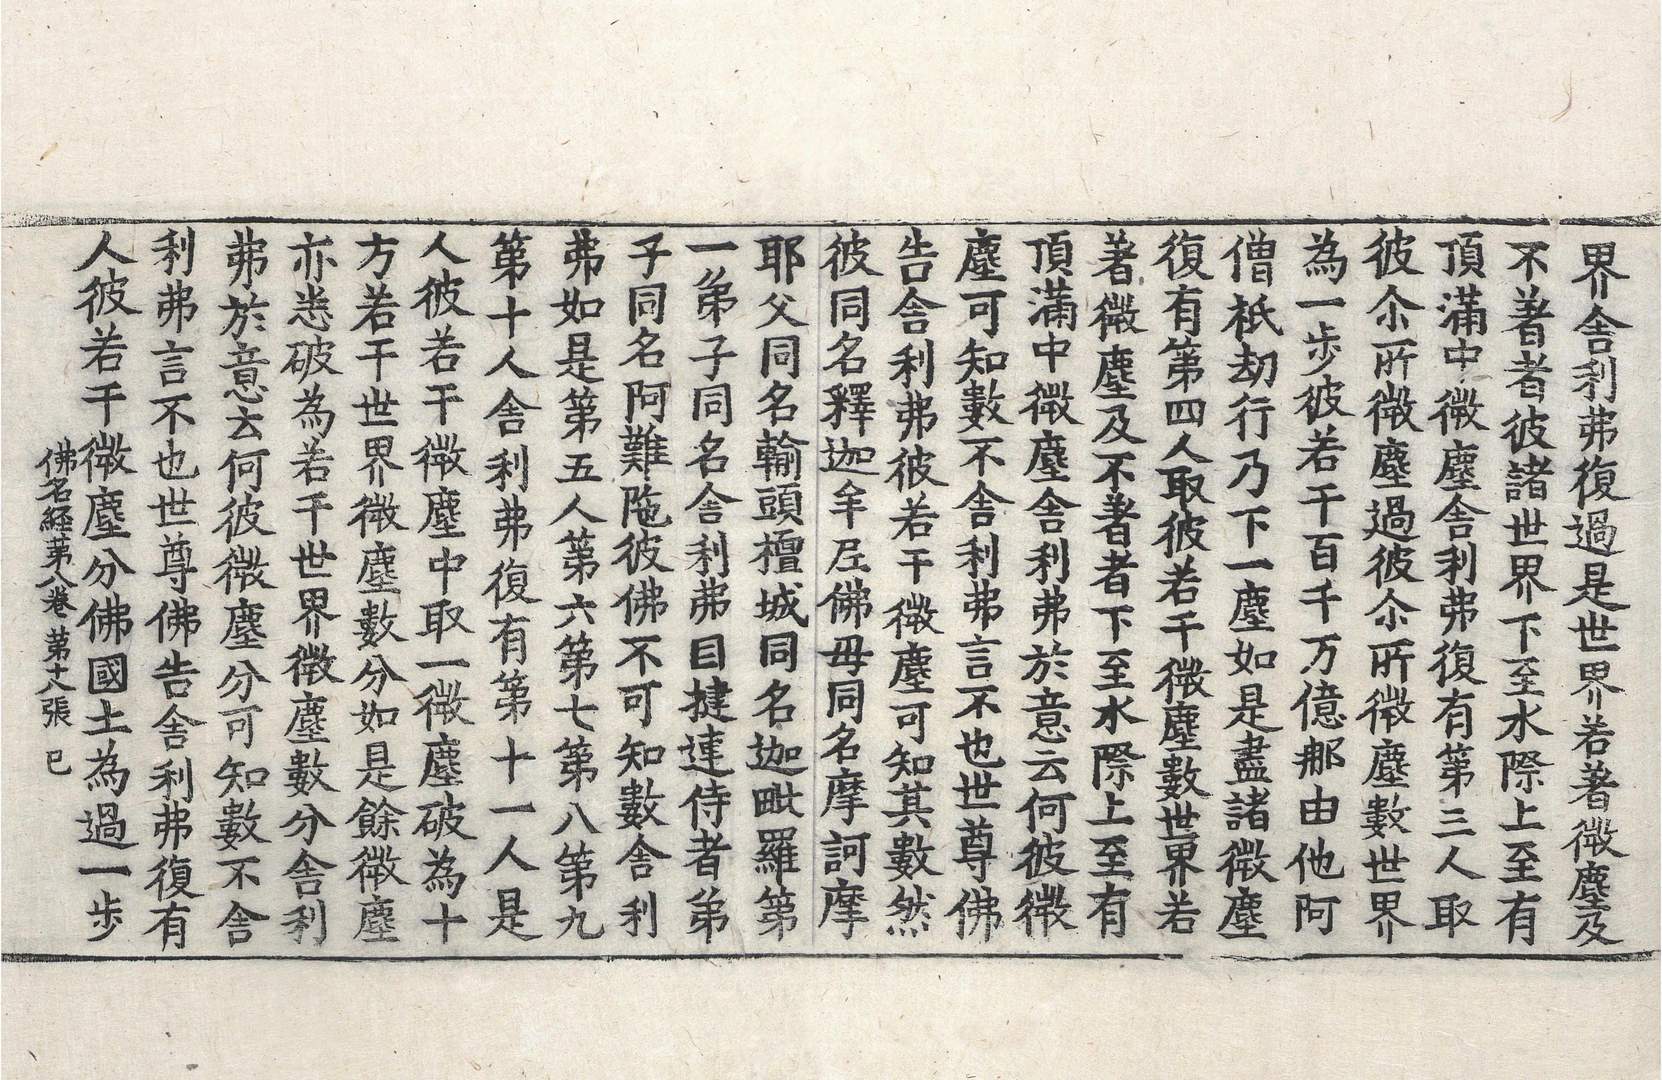 界舎利弗復過是世界若著微塵及
不著者彼諸世界下至水際上至有
頂滿中微塵舎利弗復有第三人取
彼尒所微塵過彼尒所微塵數世界
為一歩彼若干百千万億那由他阿
僧祇劫行乃下一塵如是盡諸微塵
復有第四人取彼若干微塵數世界若
著微塵及不著者下至水際上至有
頂滿中微塵舎利弗於意云何彼微
塵可知數不舎利弗言不也世尊佛
告舎利弗彼若干微塵可知其數然
彼同名釋迦牟尼佛母同名摩訶摩
耶父同名輸頭檀城同名迦毗羅第
一弟子同名舎利弗目揵連侍者弟
子同名阿難陁彼佛不可知數舎利
弗如是第五人第六第七第八第九
第十人舎利弗復有第十一人是
人彼若干微塵中取一微塵破為十
方若干世界微塵數分如是餘微塵
亦悉破為若干世界微塵數分舎利
弗於意云何彼微塵分可知數不舎
利弗言不也世尊佛告舎利弗復有
人彼若干微塵分佛國土為過一歩
佛名経第八卷 第十八張 巳